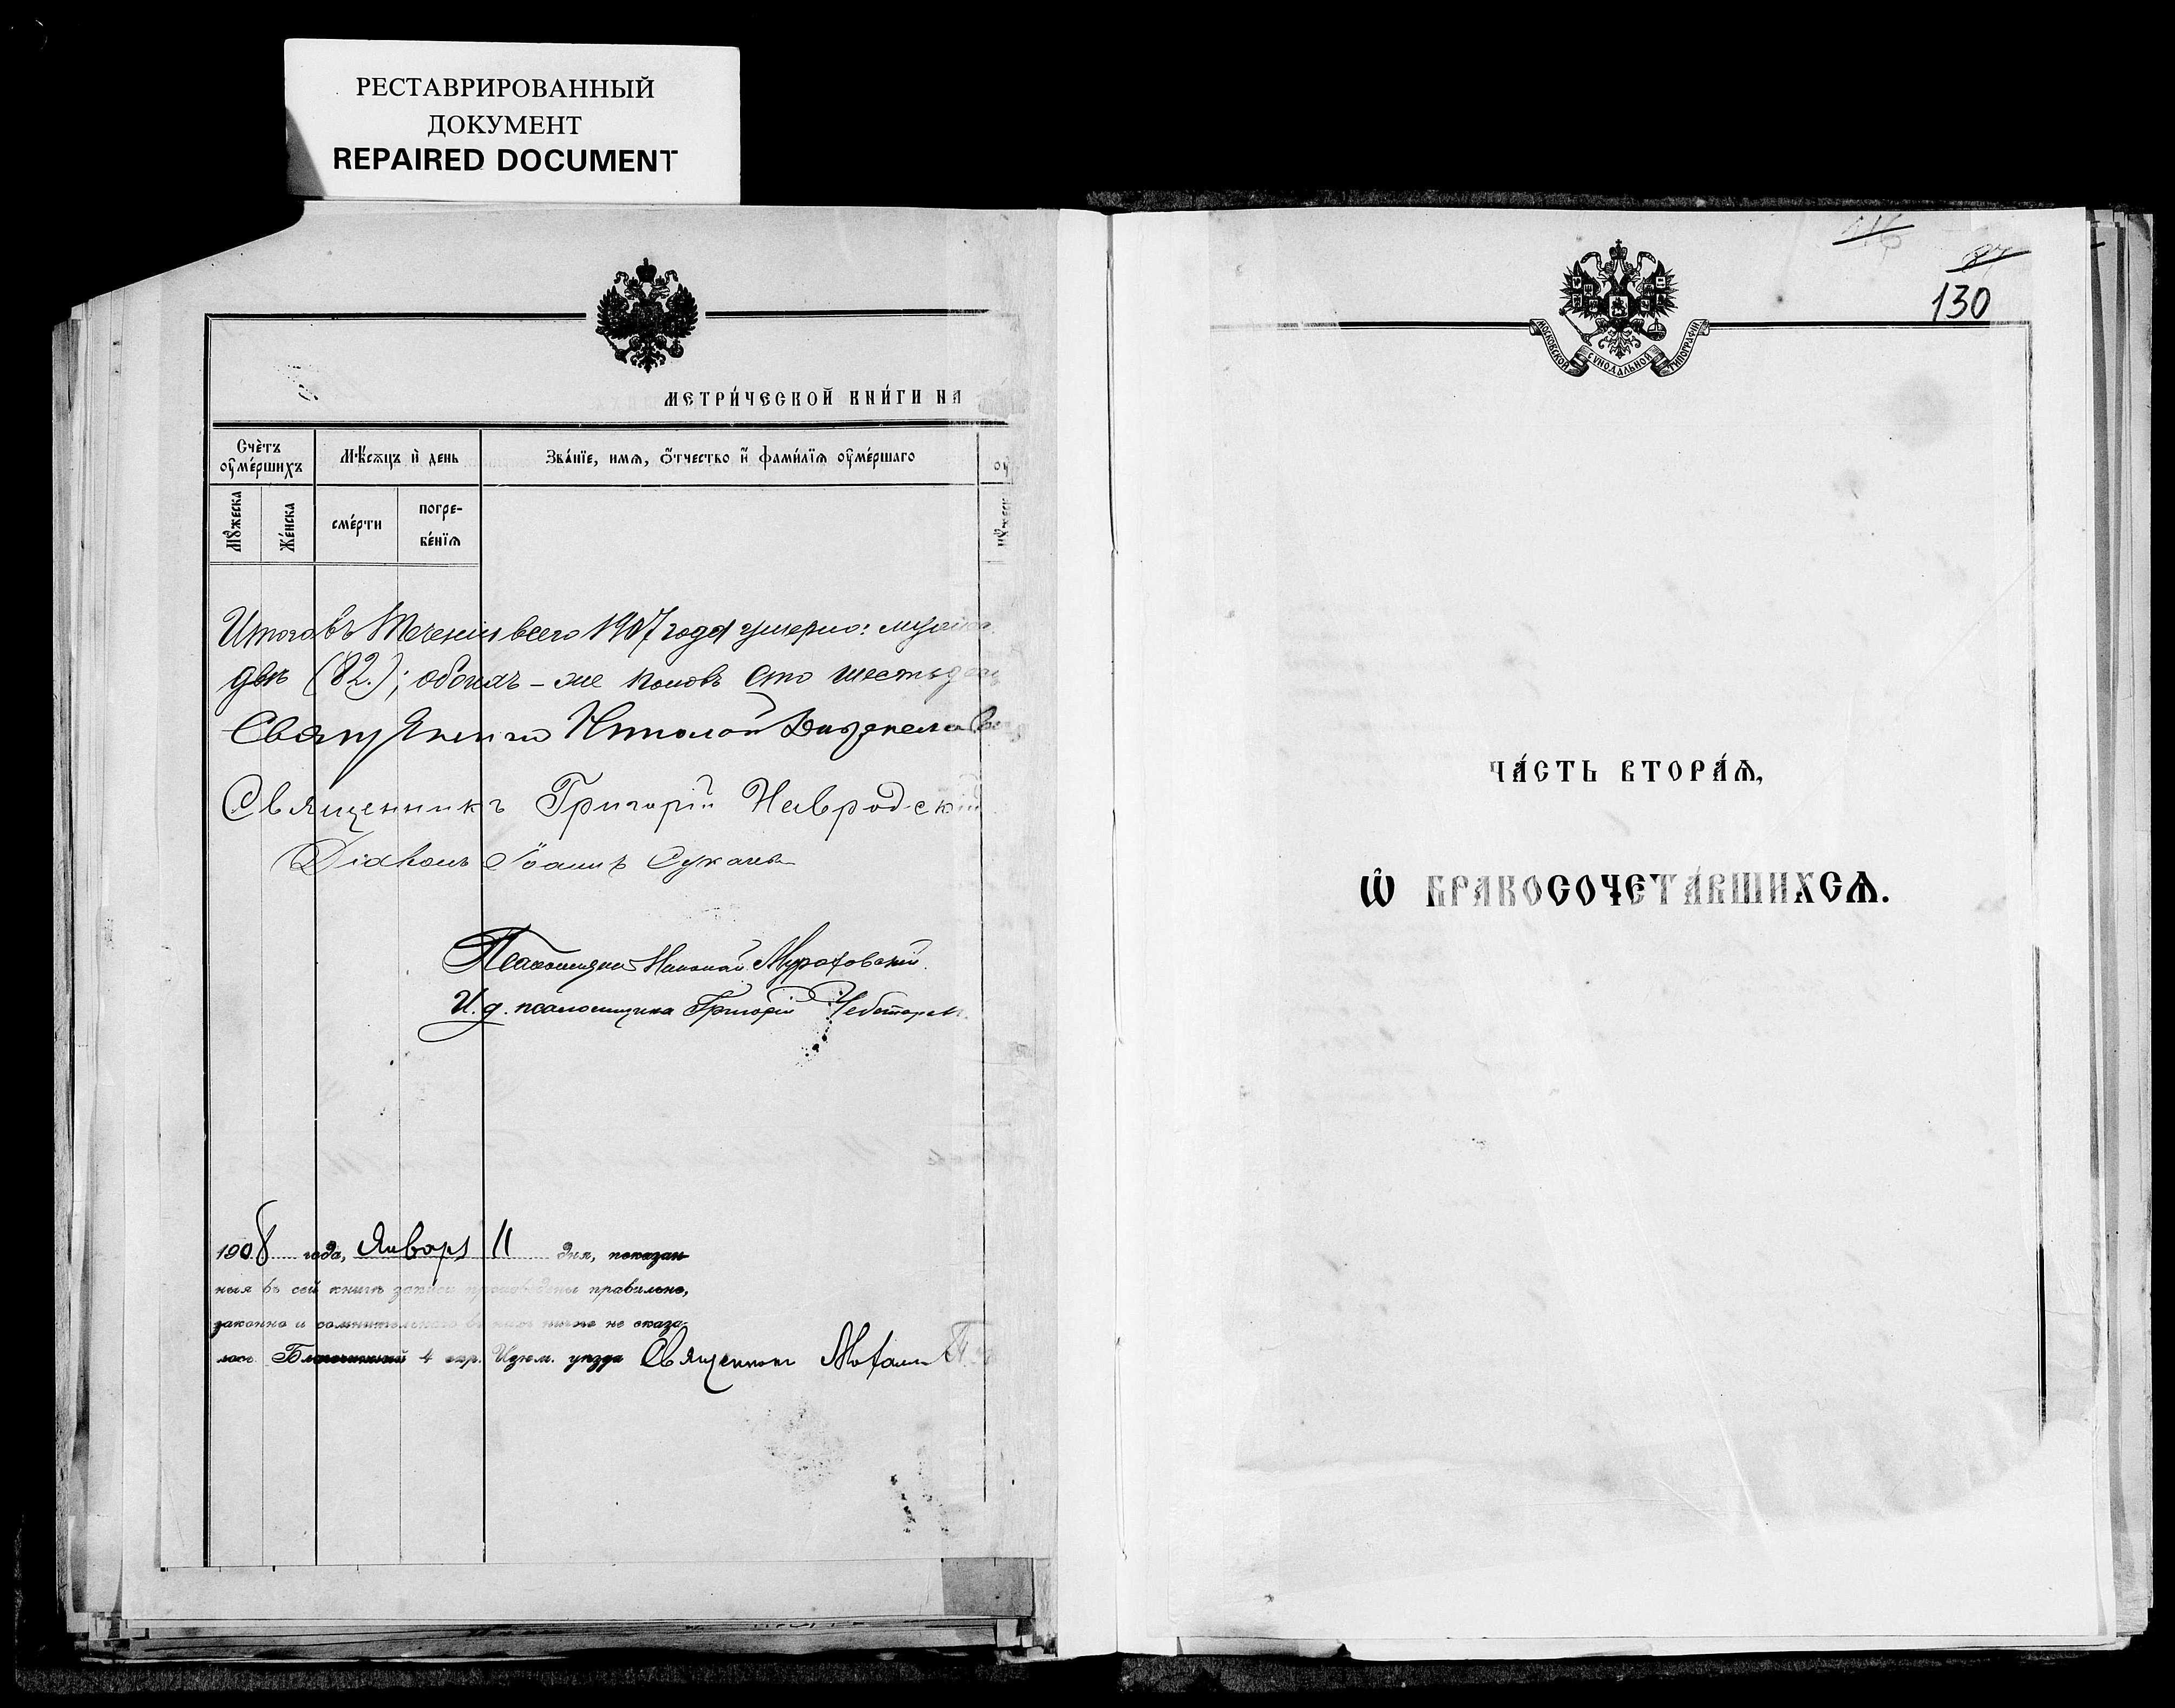 РЕСТАВРИРОВАННЫЙ
ДОКУМЕНТ
REPAIRED DOCUMENT
МЕТРИ́ЧЕСКОЙ КНИ́ГИ НА
Счѐтъ ᲂу҆ме́ршихъ
Мѣ́сѧцъ и҆ день
Зва́нїе, имѧ, ѻ҆́тчество и҆ фами́лїѧ ᲂу҆ме́ршаго
Мꙋ́жеска
Же́нска
сме́рти
погре-
бе́нїѧ
Итого въ теченіи всего 1907 года умерло:
двѣ (82.); обоихъ - же половъ сто
Священникъ Николай
Священникъ Григорій Навродскій
Діаконъ Іоаннъ
Псаломщикъ Николай
И. д. псаломщика Григорій
1908 года, Января 11 дня, показан-
ныя въ сей книгѣ записи произведены правильно,
законно и сомнительнаго въ нихъ ничего не оказа-
лось. Благочинный 4 окр. Изюм. уѣзда Священникъ
116
87
130
МОСКОВСКОЙ СѴНОДАЛЬНОЙ ТИПОГРАФІИ
ЧА́СТЬ ВТОРА́Ѧ,
Ѡ҆ БРАКОСОЧЕТА́ВШИХСѦ.